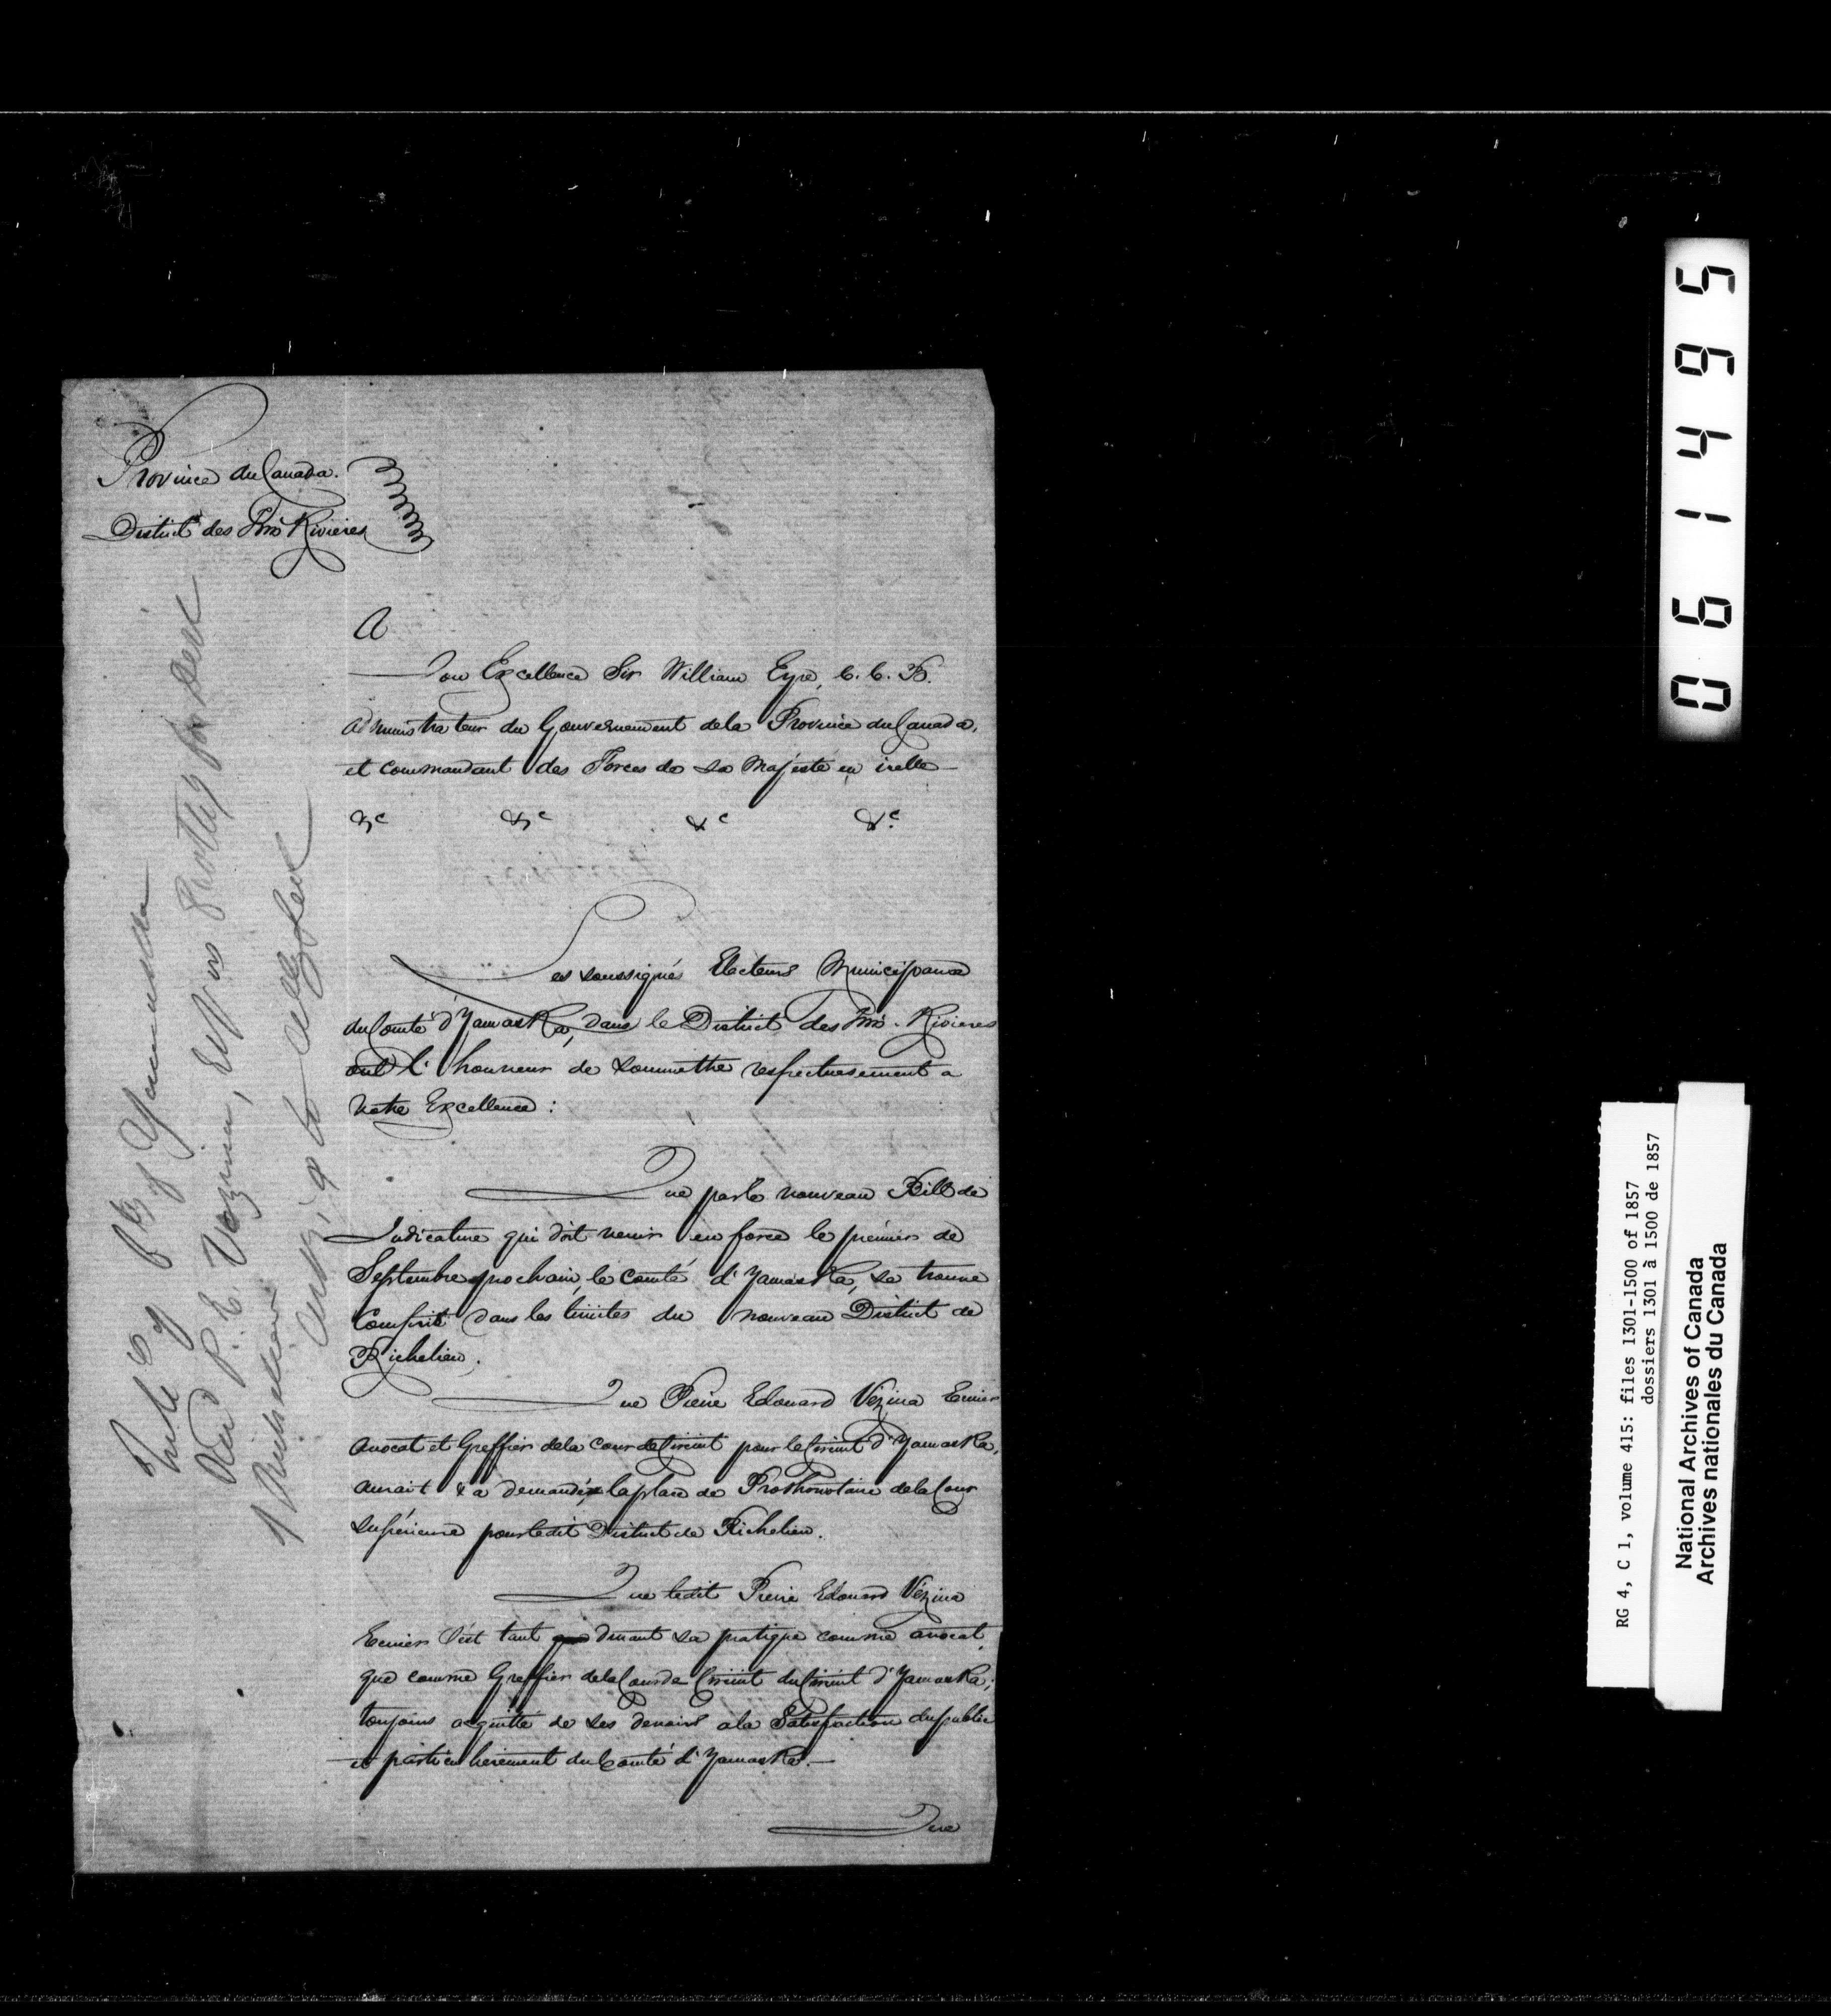 Province du Canada.
District des Trois Rivieres
A
Son Excellence Sir William Eyre, C. C. B.
Administrateur du Gouvernement dela Province du Canada,
et Commandant des Forces de Sa Majesté en icelle
&c &c &c &c
Les soussignés Electeurs Municipaux
du Comté d'Yamaska, dans le District des Trois-Rivieres
ont l'honneur de soumettre respectueusement a
Votre Excellence:
Que par le nouveau Bill de
Judicature qui doit venir en force le premier de
Septembre prochain, le comté d'Yamaska, se trouve
Compris dans les limites du nouveau District de
Richelieu.
Que Pierre Edouard Vézina Ecuier
Avocat et Greffier dela Cour de Circuit pour le Circuit d'Yamaska,
aurait & a demandé la place de Prothonotaire dela Cour
Supérieure pour ledit District de Richelieu.
Que ledit Pierre Edouard Vézina
Ecuier S'est tant durant sa pratique comme avocat
que comme Greffier dela Cour de Circuit du Circuit d'Yamaska;
toujours acquitté de ses devoirs ala Satisfaction du public
et particulierement du Comté d'Yamaska.
Que
of Yamaska
P. E. Vezina, Esq. as Prothy for Dist
Richelieu
061495
RG 4, C 1, volume 415: files 1301-1500 of 1857
dossiers 1301 à 1500 de 1857
National Archives of Canada
Archives nationales du Canada